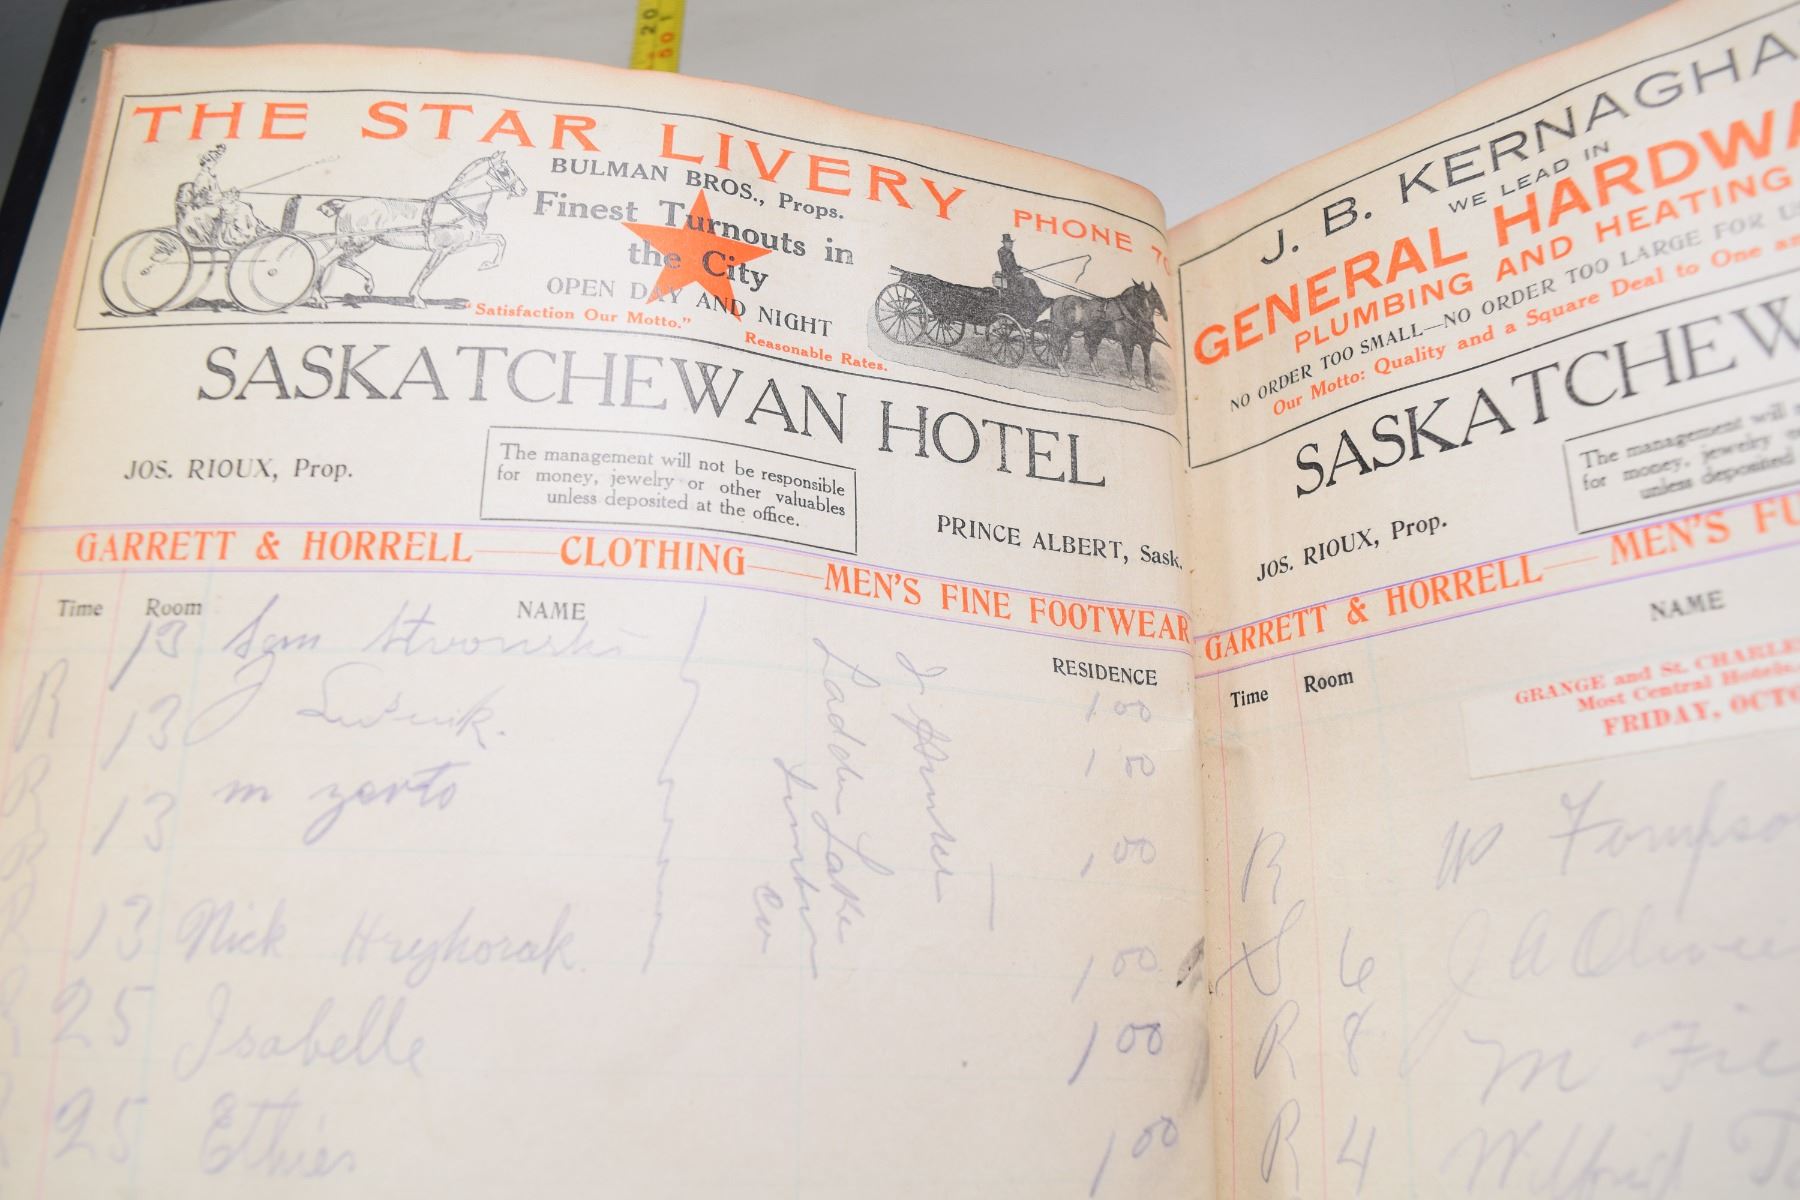 20
THE STAR LIVERY
BULMAN BROS., Props.
PHONE 70
Finest Turnouts in
the City
OPEN DAY AND NIGHT
"Satisfaction Our Motto."
Reasonable Rates.
SASKATCHEWAN HOTEL
JOS. RIOUX, Prop.
The management will not be responsible
for money, jewelry or other valuables
unless deposited at the office.
PRINCE ALBERT, Sask.
GARRETT & HORRELL — CLOTHING — MEN'S FINE FOOTWEAR
Time Room NAME RESIDENCE
13 Sam 1 00
R 13 J 1 00
R 13 m zarto 1 00
R 13 Nick Hryhorak. 1 00
Ladder Lake
Lumber
Co
25 Isabelle 1 00
25 Ethier 1 00
J. B. KERNAGHA
WE LEAD IN
GENERAL HARDWA
PLUMBING AND HEATING
NO ORDER TOO SMALL—NO ORDER TOO LARGE FOR US
Our Motto: Quality and a Square Deal to One an
SASKATCHEW
JOS. RIOUX, Prop.
The management will
for money, jewelry
unless deposited
GARRETT & HORRELL — MEN'S FU
Time Room NAME
GRANGE and St. CHARLES
Most Central Hotels
FRIDAY, OCTO
R W
6 J A
R 8 M
R 4 Wilfrid